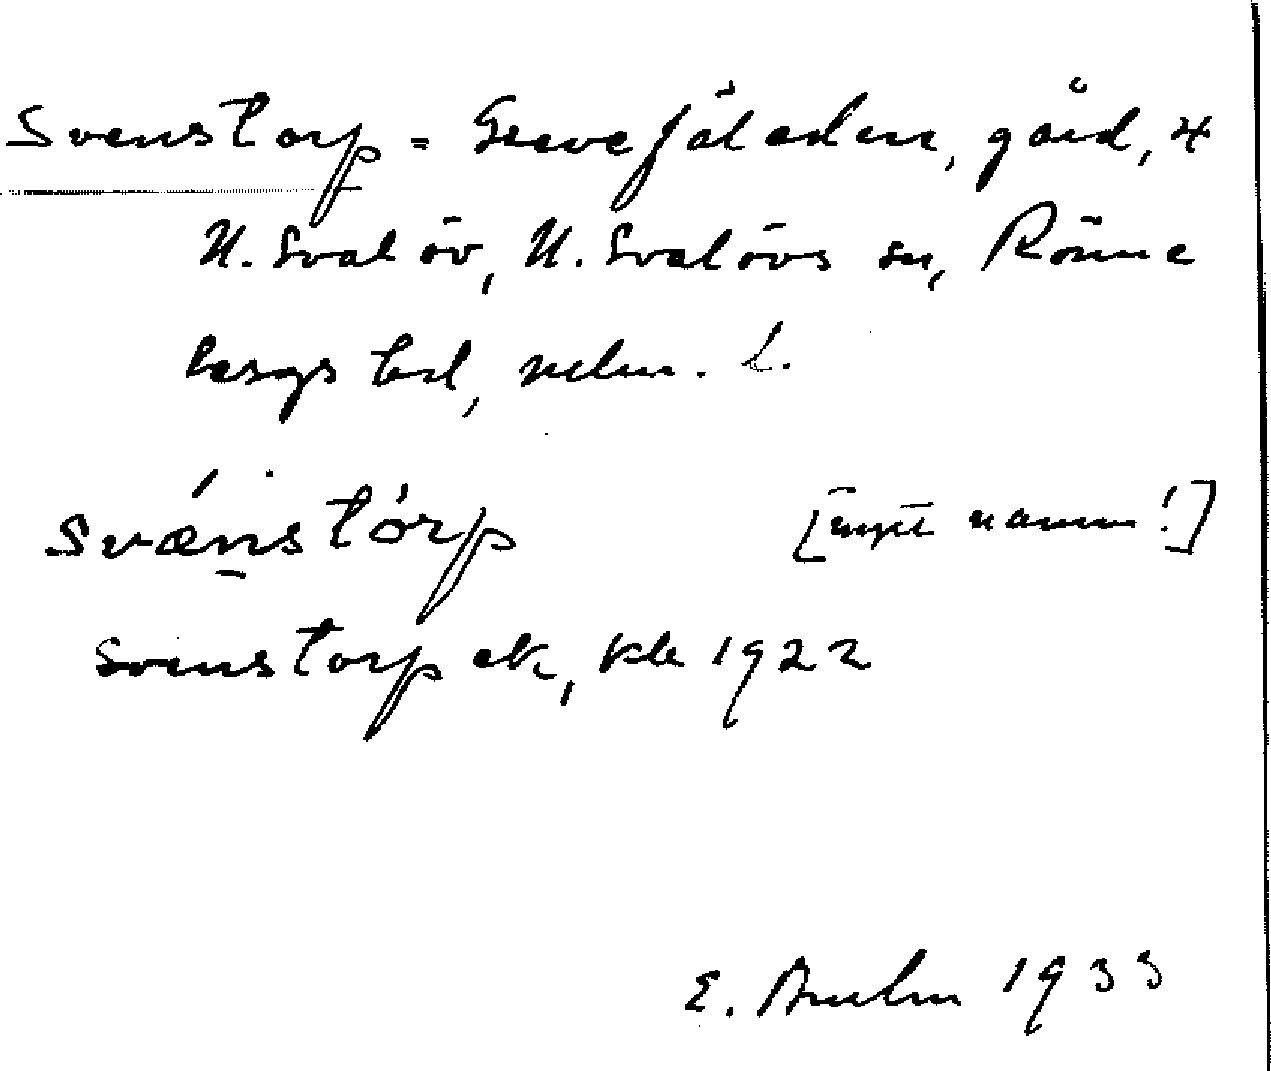 Svenstorp = Grevefäladen, gård, 4
N. Svalöv, N. Svalövs sn, Rönne
bergs hd, mlm. l.
Svǽnstórp [nytt namn!]
Svenstorp ek, kb 1922
E. 1933